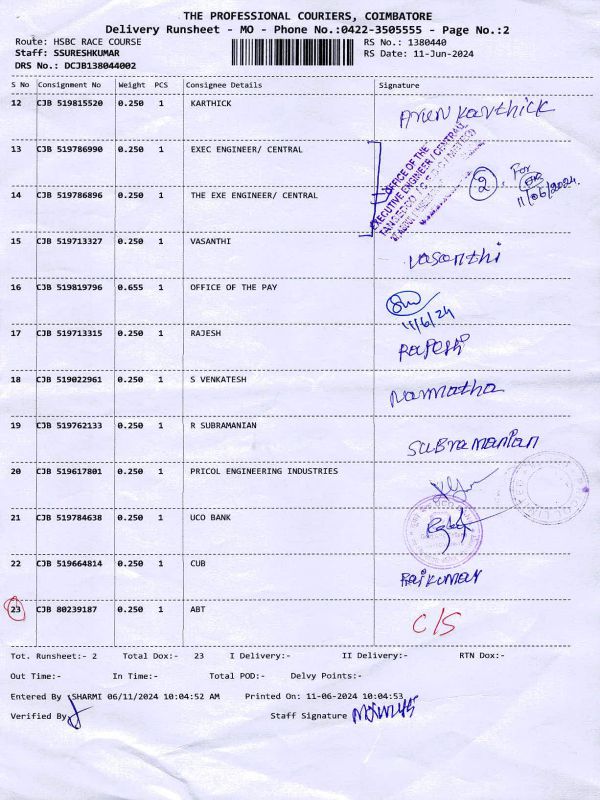 THE PROFESSIONAL COURIERS, COIMBATORE
Delivery Runsheet - MO - Phone No.:0422-3505555 - Page No.:2
Route: HSBC RACE COURSE RS No.: 1380440
Staff: SSURESHKUMAR RS Date: 11-Jun-2024
DRS No.: DCJB138044002
S No Consignment No Weight PCS Consignee Details Signature
12 CJB 519815520 0.250 1 KARTHICK Arun Karthick
13 CJB 519786990 0.250 1 EXEC ENGINEER/ CENTRAL
OFFICE OF THE
EXECUTIVE ENGINEER / CENTRAL
2 For
11/06/2024.
14 CJB 519786896 0.250 1 THE EXE ENGINEER/ CENTRAL
15 CJB 519713327 0.250 1 VASANTHI Vasanthi
16 CJB 519819796 0.655 1 OFFICE OF THE PAY
11/6/24
17 CJB 519713315 0.250 1 RAJESH Rajesh
18 CJB 519022961 0.250 1 S VENKATESH Narmatha
19 CJB 519762133 0.250 1 R SUBRAMANIAN Subramanian
20 CJB 519617801 0.250 1 PRICOL ENGINEERING INDUSTRIES
21 CJB 519784638 0.250 1 UCO BANK
22 CJB 519664814 0.250 1 CUB Rajkumar
23 CJB 80239187 0.250 1 ABT C/S
Tot. Runsheet:- 2 Total Dox:- 23 I Delivery:- II Delivery:- RTN Dox:-
Out Time:- In Time:- Total POD:- Delvy Points:-
Entered By :SHARMI 06/11/2024 10:04:52 AM Printed On: 11-06-2024 10:04:53
Verified By Staff Signature